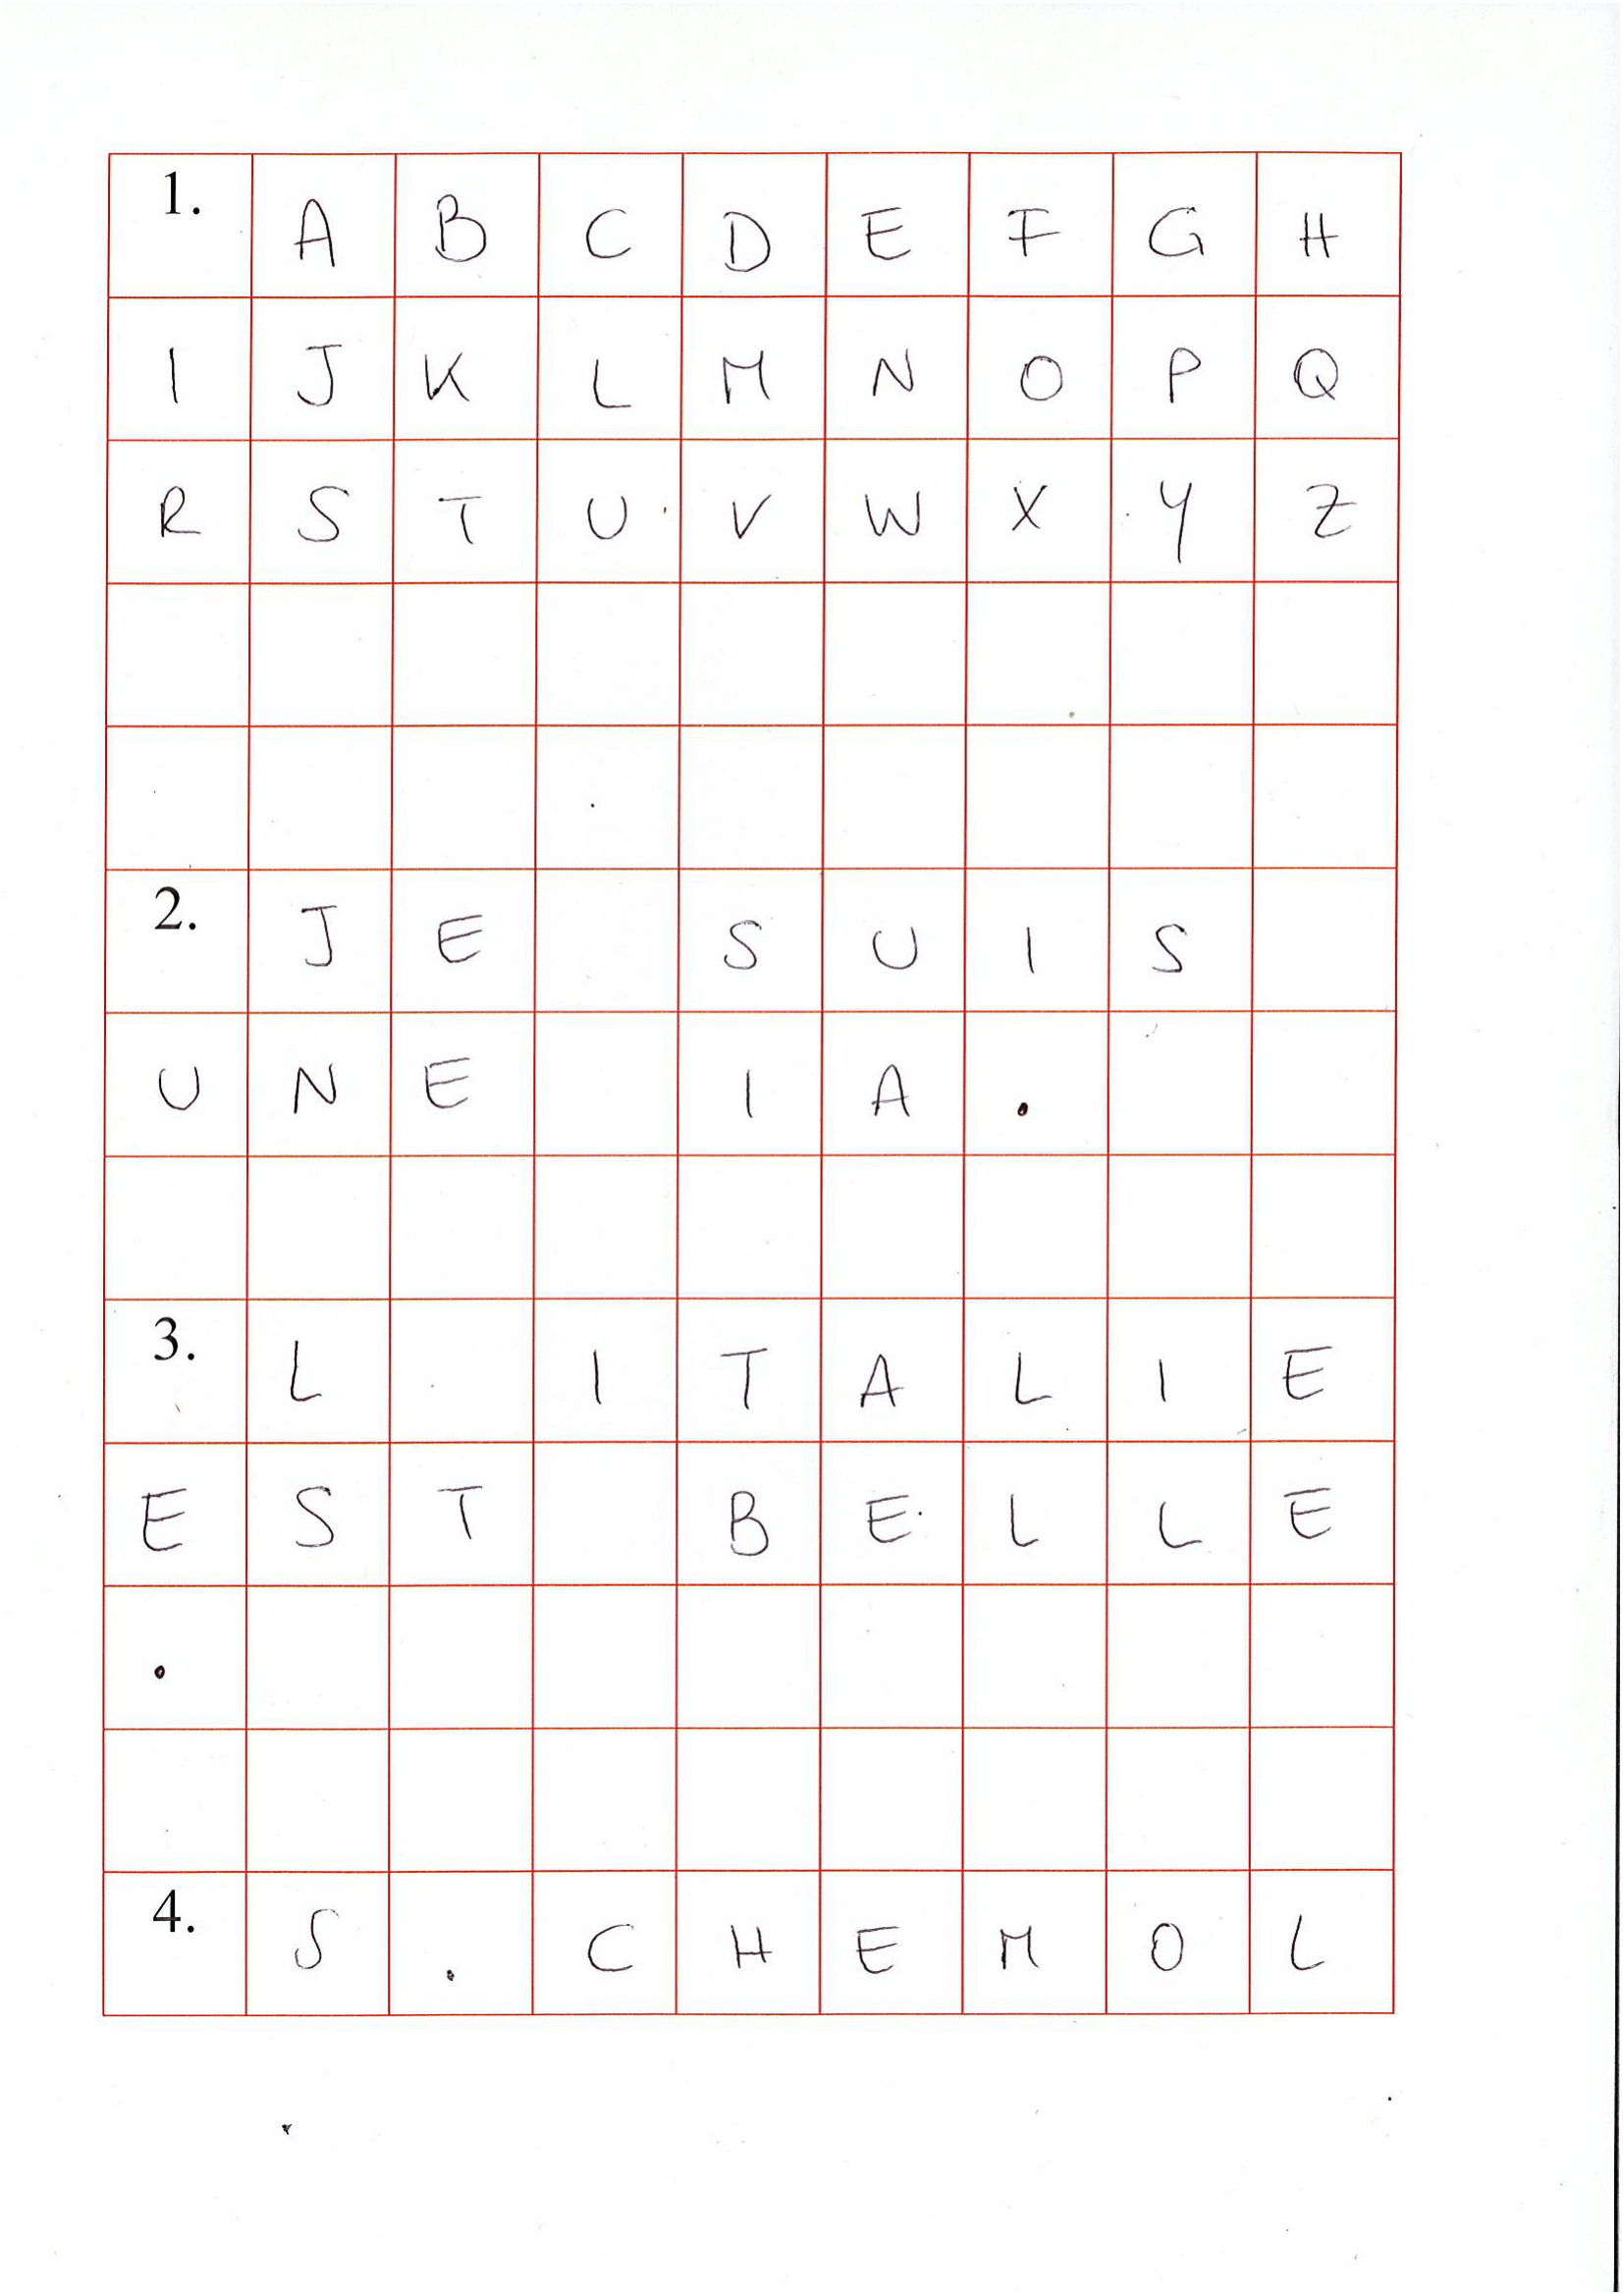 1. A B C D E F G H
I J K L M N O P Q
R S T U V W X Y Z
2. J E S U I S
U N E I A .
3. L I T A L I E
E S T B E L L E
.
4. S . C H E M O L